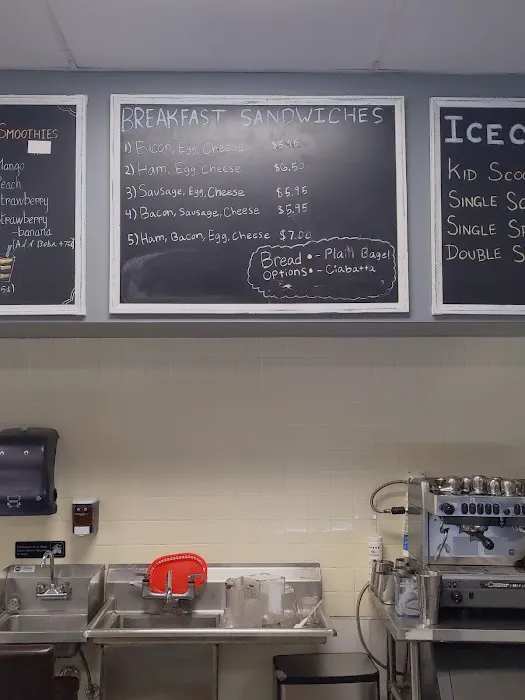 SMOOTHIES
Mango
Peach
Strawberry
Strawberry
-banana
BREAKFAST SANDWICHES
1) Bacon, Egg, Cheese $5.95
2) Ham, Egg, Cheese $6.50
3) Sausage, Egg, Cheese $6.95
4) Bacon, Sausage, Cheese $5.95
5) Ham, Bacon, Egg, Cheese $7.00
Bread • - Plain Bagel
Options • - Ciabatta
ICEC
KID SCOO
SINGLE SC
SINGLE SP
DOUBLE S